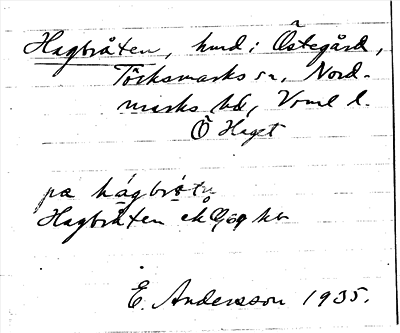 Hagbråten, hmd i Östegård,
Töcksmarks sn, Nord-
marks hd, Vrml l.
Ö Haget
på hágbrò̀tn
Hagbråten ek
E. Andersson 1935.